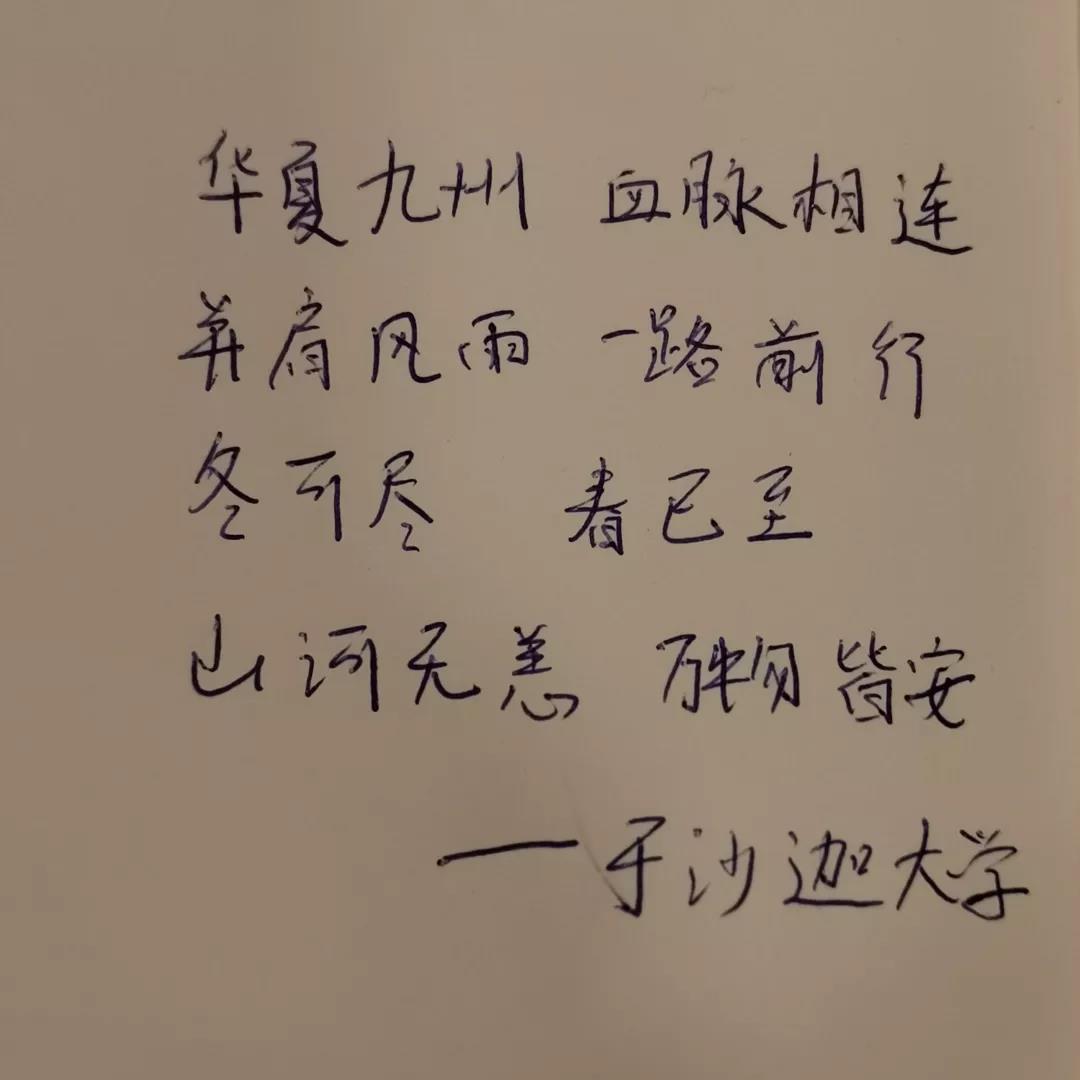 华夏九州 血脉相连
并肩风雨 一路前行
冬可尽 春已至
山河无恙 万物皆安
——于沙迦大学